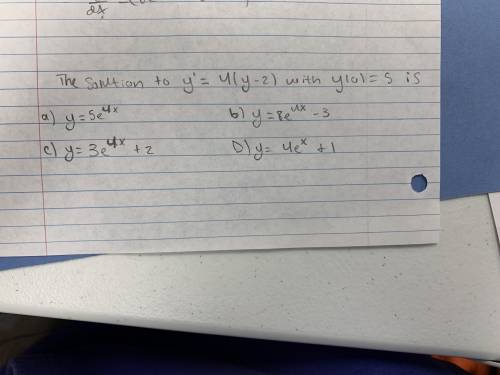 The solution to y' = 4(y-2) with y(0) = 5 is
a) y = 5e^4x b) y = 8e^4x - 3
c) y = 3e^4x + 2 D) y = 4e^x + 1